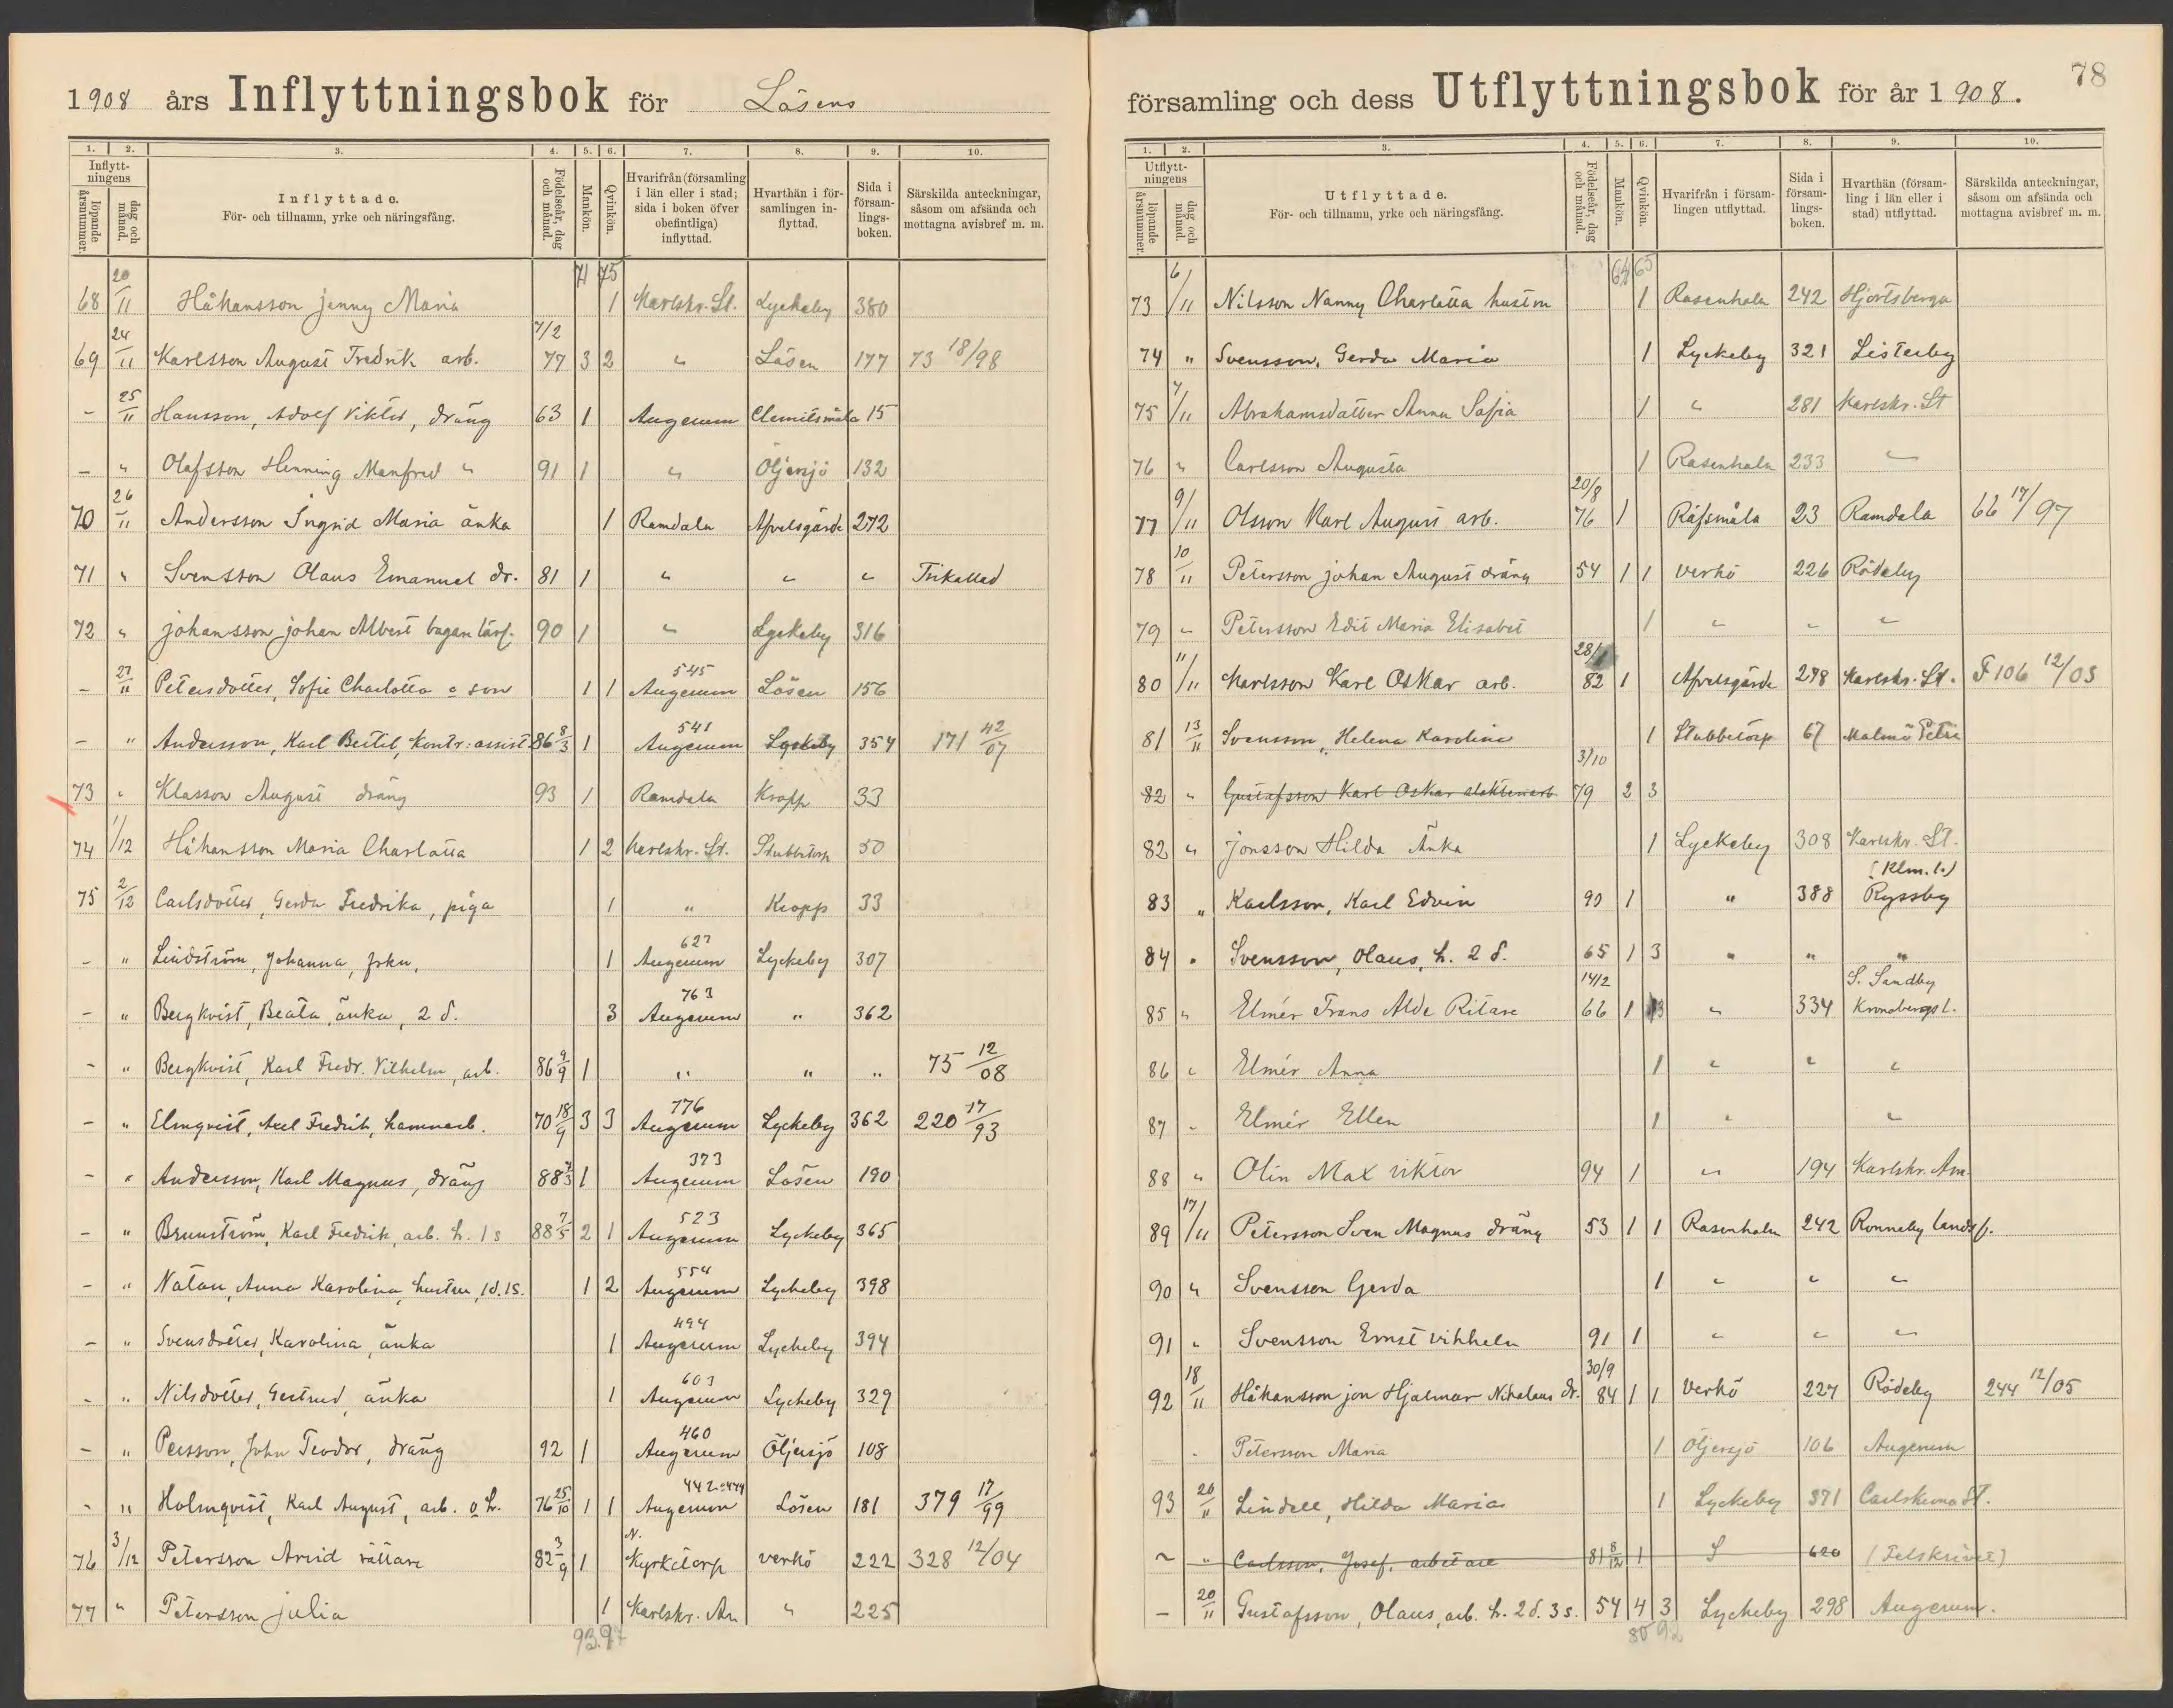 1908 års Inflyttningsbok för Lösens
1. 2. 3. 4. 5. 6. 7. 8. 9. 10.
Inflyttningens löpande årsnummer. dag och månad. Inflyttade. För- och tillnamn, yrke och näringsfång. Födelseår, dag och månad. Mankön. Qvinkön. Hvarifrån (församling i län eller i stad; sida i boken öfver obefintliga) inflyttad. Hvarthän i församlingen inflyttad. Sida i församlingsboken. Särskilda anteckningar, såsom om afsända och mottagna avisbref m. m.
71 75
68 20/11 Håkansson Jenny Maria 1 Karlskr. St. Lyckeby 380
69 24/11 Karlsson August Fredrik arb. 7/2 77 3 2 " Lösen 177 73 18/98
- 25/11 Hansson, Adolf Viktor, dräng 63 1 Augerum Clemitsmåla 15
- " Olofsson Henning Manfred " 91 1 " Öljersjö 132
70 26/11 Andersson Ingrid Maria änka 1 Ramdala Afvelsgärde 272
71 " Svensson Olaus Emanuel dr. 81 1 " " " Frikallad
72 " Johansson Johan Albert bagarelärl. 90 1 " Lyckeby 316
- 27/11 Petersdotter, Sofie Charlotta o son 1 1 545 Augerum Lösen 156
- " Andersson, Karl Bertil, kontr: assist 86 8/3 1 541 Augerum Lyckeby 354 171 42/07
73 " Klasson August dräng 93 1 Ramdala Kropp 33
74 1/12 Håkansson Maria Charlotta 1 2 Karlskr. St. Stubbetorp 50
75 2/12 Carlsdotter, Gerda Fredrika, piga 1 " Kropp 33
- " Lindström, Johanna, frkn, 1 627 Augerum Lyckeby 307
- " Bergkvist, Beata, änka, 2 d. 3 763 Augerum " 362
- " Bergkvist, Karl Fredr. Vilhelm, arb. 86 9/9 1 " " " 75 12/08
- " Elmqvist, Axel Fredrik, hamnarb. 70 18/9 3 3 776 Augerum Lyckeby 362 220 17/93
- " Andersson, Karl Magnus, dräng 88 1 373 Augerum Lösen 190
- " Brunström, Karl Fredrik, arb. h. 1 s 88 7/5 2 1 523 Augerum Lyckeby 365
- " Natan, Anna Karolina, hustru, 1 d. 1 s. 1 2 554 Augerum Lyckeby 398
- " Svensdotter, Karolina, änka 1 494 Augerum Lyckeby 394
- " Nilsdotter, Gertrud, änka 1 603 Augerum Lyckeby 329
- " Persson, John Teodor, dräng 92 1 460 Augerum Öljersjö 108
- " Holmqvist, Karl August, arb. o h. 76 25/10 1 1 442 Augerum Lösen 181 379 17/99
76 3/12 Petersson Arvid rättare 82 3/9 1 N. Kyrketorp Verkö 222 328 12/04
77 " Petersson Julia 1 Karlskr. Am " 225
93. 97
församling och dess Utflyttningsbok för år 1908. 78
1. 2. 3. 4. 5. 6. 7. 8. 9. 10.
Utflyttningens löpande årsnummer. dag och månad. Utflyttade. För- och tillnamn, yrke och näringsfång. Födelseår, dag och månad. Mankön. Qvinkön. Hvarifrån i församlingen utflyttad. Sida i församlingsboken. Hvarthän (församling i län eller i stad) utflyttad. Särskilda anteckningar, såsom om afsända och mottagna avisbref m. m.
64 65
73 6/11 Nilsson Nanny Charlotta hustru 1 Rosenholm 242 Hjortsberga
74 " Svensson, Gerda Maria 1 Lyckeby 321 Listerby
75 7/11 Abrahamsdotter Anna Sofia 1 " 281 Karlskr. St
76 " Carlsson Augusta 1 Rosenholm 233 "
77 9/11 Olsson Karl August arb. 20/8 76 1 Räfsmåla 23 Ramdala 66 17/97
78 10/11 Petersson Johan August dräng 54 1 1 Verkö 226 Rödeby
79 " Petersson Edit Maria Elisabet 1 " " "
80 11/11 Karlsson Karl Oskar arb. 28/1 82 1 Afvelsgärde 278 Karlskr. St. F 106 12/03
81 13/11 Svensson, Helena Karolina 1 Stubbetorp 67 Malmö Petri
82 " Gustafsson Karl Oskar slakteriarb 3/10 79 2 3
82 " Jonsson Hilda Änka 1 Lyckeby 308 Karlskr. St.
83 " Karlsson, Karl Edvin 90 1 " 388 (Klm. l.) Ryssby
84 " Svensson, Olaus, h. 2 d. 65 1 3 " " "
85 " Elmér Frans Alde Ritare 14/2 66 1 3 " 334 S. Sandby Kronobergs l.
86 " Elmér Anna 1 " " "
87 " Elmér Ellen 1 " "
88 " Olin Max Viktor 94 1 " 194 Karlskr. Am.
89 17/11 Petersson Sven Magnus dräng 53 1 1 Rosenholm 242 Ronneby landsf.
90 " Svensson Gerda 1 " " "
91 " Svensson Ernst Vilhelm 91 1 " " "
92 18/11 Håkansson Jon Hjalmar Nikolaus dr. 30/9 84 1 1 Verkö 227 Rödeby 244 12/05
- Petersson Maria 1 Öljersjö 106 Augerum
93 20/11 Lindell, Hilda Maria 1 Lyckeby 371 Carlskrona St.
~ " Carlsson, Josef, arbetare 81 8/12 1 S 620 (Felskrivet)
- 20/11 Gustafsson, Olaus, arb. h. 2 d. 3 s. 54 4 3 Lyckeby 298 Augerum.
80 92